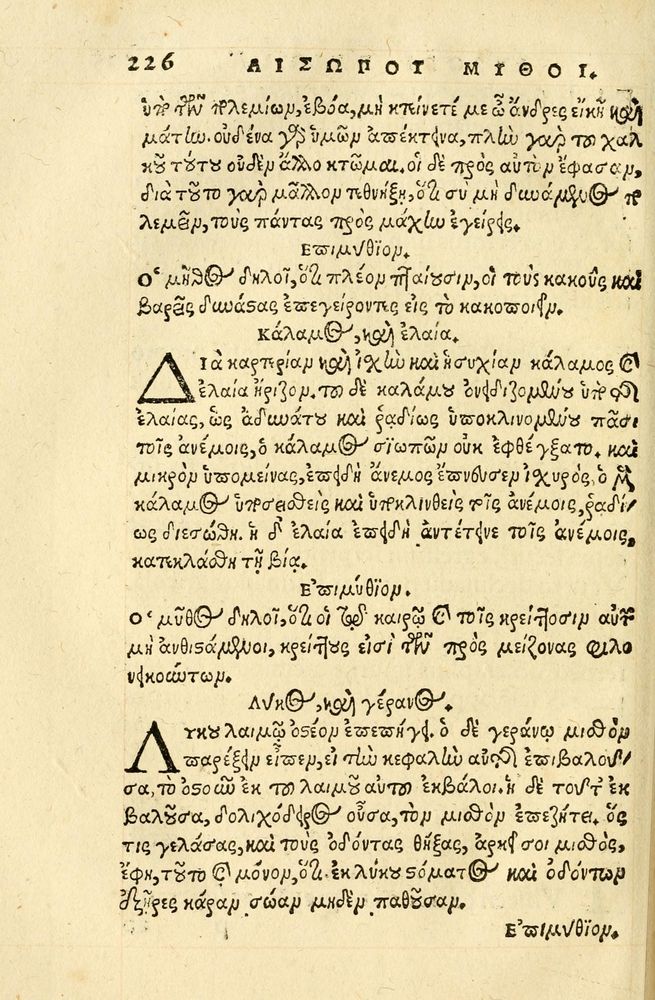 226 ΑΙΣΩΠΟΥ ΜΥΘΟΙ.
ὑπὸ τῶν πολεμίων, ἐβόα, μὴ κτείνετέ με ὦ ἄνδρες εἰκῆ καὶ
μάτην. οὐδένα γὰρ ὑμῶν ἀπέκτεινα, πλὴν γὰρ τοῦ χαλ
κοῦ τούτου οὐδὲν ἄλλο κτῶμαι. οἱ δὲ πρὸς αὐτὸν ἔφασαν,
διὰ τοῦτο γὰρ μᾶλλον τεθνήξῃ, ὅτι σὺ μὴ δυνάμενος πο
λεμεῖν, τοὺς πάντας πρὸς μάχην ἐγείρεις.
Επιμύθιον.
Ο῾ μῦθος δηλοῖ, ὅτι πλέον πταίουσιν, οἱ τοὺς κακοὺς καὶ
βαρεῖς δυνάστας ἐπεγείροντες εἰς τὸ κακοποιεῖν.
Κάλαμος, καὶ ἐλαία.
ΔΙὰ καρτερίαν καὶ ἰσχὺν καὶ ἡσυχίαν κάλαμος καὶ
ἐλαία ἤριζον. τοῦ δὲ καλάμου ὀνειδιζομένου ὑπὸ τῆς
ἐλαίας, ὡς ἀδυνάτου καὶ ῥαδίως ὑποκλινομένου πᾶσι
τοῖς ἀνέμοις, ὁ κάλαμος σιωπῶν οὐκ ἐφθέγξατο. καὶ
μικρὸν ὑπομείνας, ἐπειδὴ ἄνεμος ἔπνευσεν ἰσχυρός, ὁ μὲν
κάλαμος ὑποσεισθεὶς καὶ ὑποκλινθεὶς τοῖς ἀνέμοις, ῥαδί
ως διεσώθη. ἡ δ᾽ ἐλαία ἐπειδὴ ἀντέτεινε τοῖς ἀνέμοις,
κατεκλάσθη τῇ βίᾳ.
Επιμύθιον.
Ο῾ μῦθος δηλοῖ, ὅτι οἱ τῷ καιρῷ καὶ τοῖς κρείττοσιν αὐτῶν
μὴ ἀνθιστάμενοι, κρείττους εἰσὶ τῶν πρὸς μείζονας φιλο
νεικούντων.
Λύκος, καὶ γέρανος.
ΛΥκου λαιμῷ ὀστέον ἐπεπήγει. ὁ δὲ γεράνῳ μισθὸν
παρέξειν εἶπεν, εἰ τὴν κεφαλὴν αὐτῆς ἐπιβαλοῦ
σα, τὸ ὀστοῦν ἐκ τοῦ λαιμοῦ αὐτοῦ ἐκβάλοι. ἡ δὲ τοῦτ᾽ ἐκ
βαλοῦσα, δολιχόδειρος οὖσα, τὸν μισθὸν ἐπεζήτει. ὅς
τις γελάσας, καὶ τοὺς ὀδόντας θήξας, ἀρκεῖ σοι μισθὸς,
ἔφη, τοῦτο καὶ μόνον, ὅτι ἐκ λύκου στόματος καὶ ὀδόντων
ἐξῆρες κάραν σώαν μηδὲν παθοῦσαν.
Επιμύθιον.